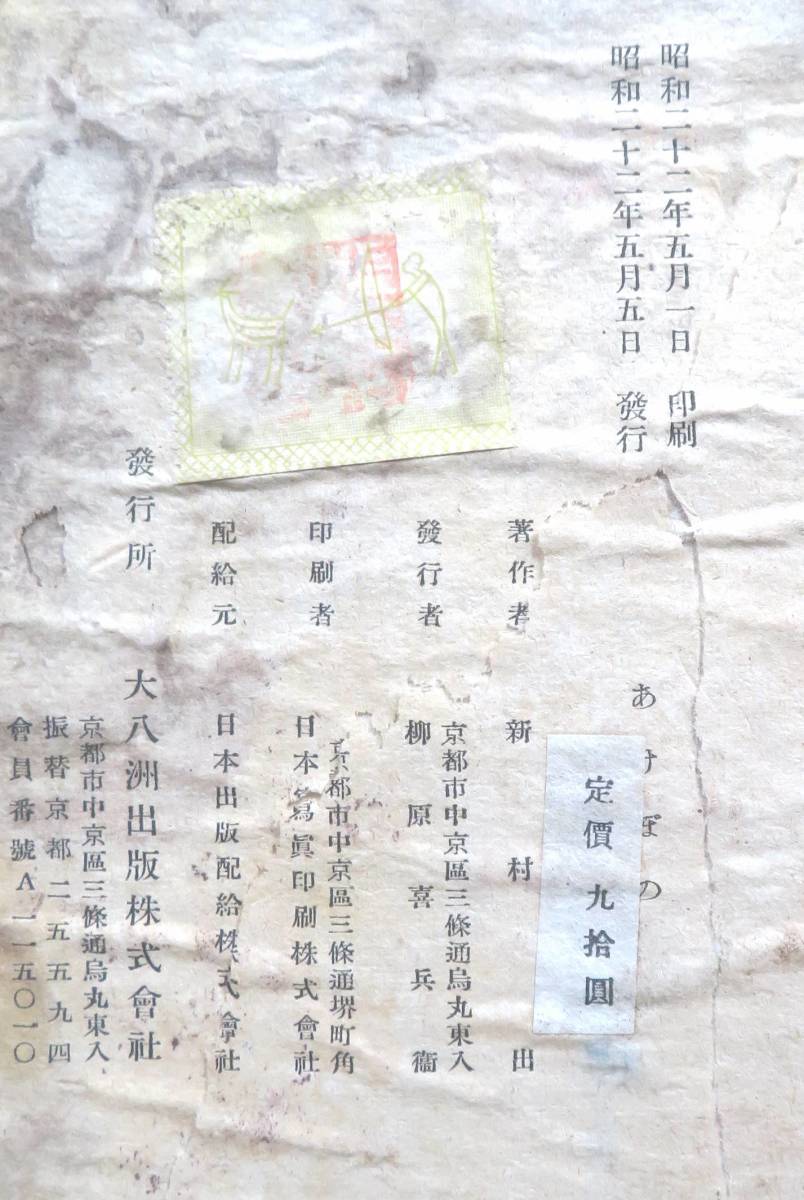 昭和二十二年五月一日 印刷
昭和二十二年五月五日 發行
あけぼの
定價 九拾圓
著作者 新村出
京都市中京區三條通烏丸東入
發行者 柳原喜兵衞
京都市中京區三條通堺町角
印刷者 日本寫眞印刷株式會社
配給元 日本出版配給株式會社
發行所 大八洲出版株式會社
京都市中京區三條通烏丸東入
振替京都二五五九四
會員番號A一一五〇一〇